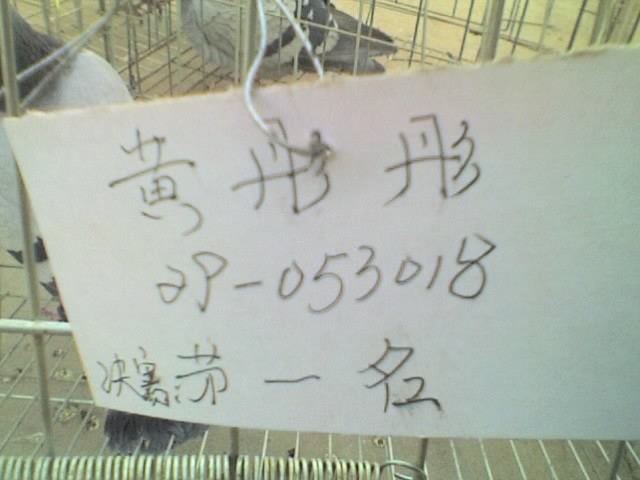 黄彤彤
29-053018
决赛第一名